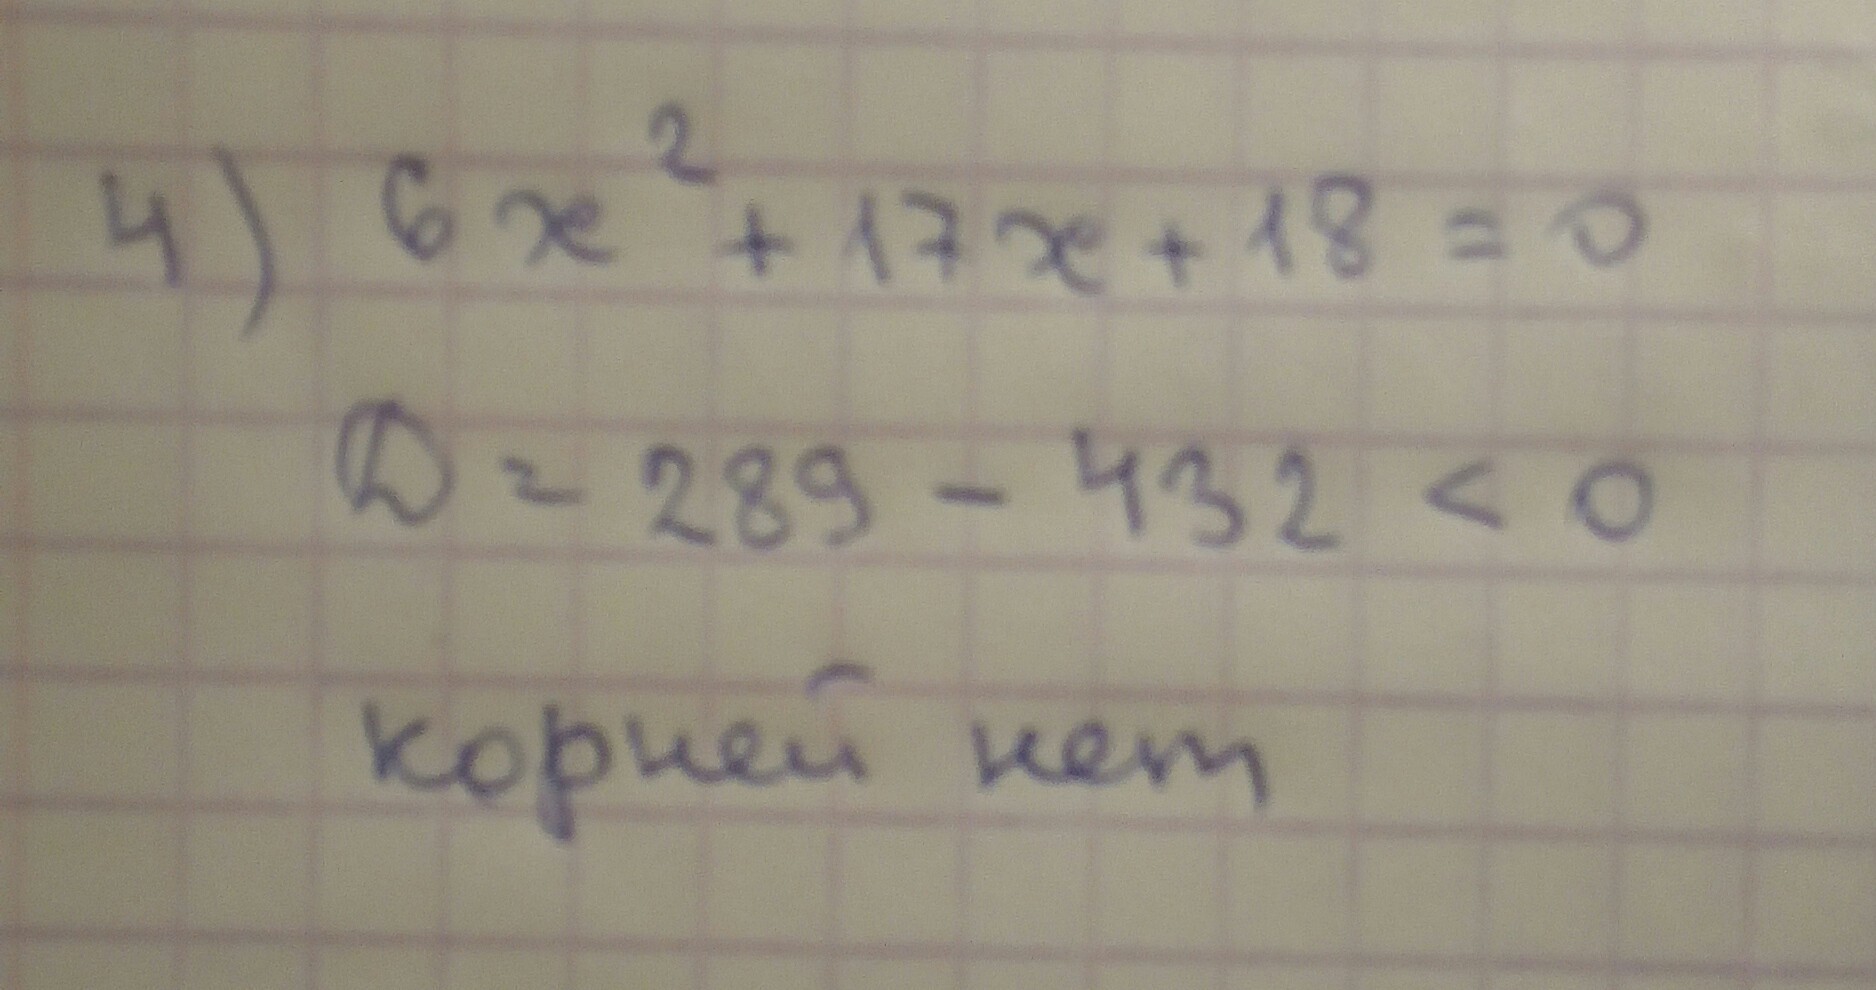 4) 6x² + 17x + 18 = 0
D = 289 - 432 < 0
корней нет